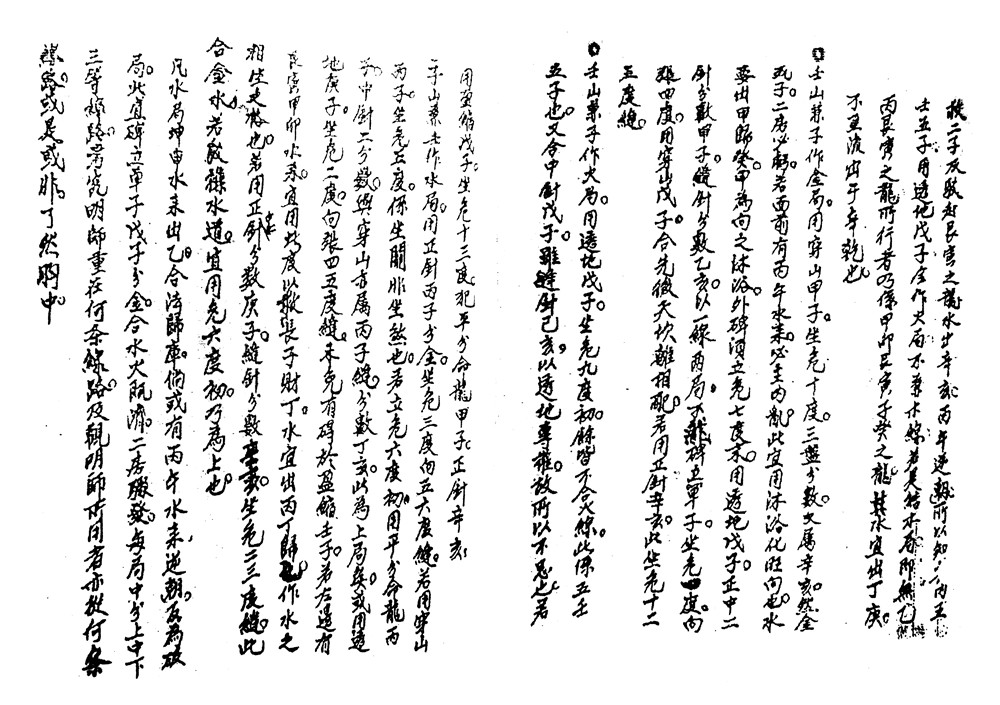 秩二子反殺赳艮寅之龍水出辛亥丙午逆朝所以知丙壬
壬五子用透地戊子金作火局不兼木線若是结木局即無乙
丙艮寅之龍所行者乃係甲卯艮寅子癸之龍其水宜出丁庚
不宜流出于辛乾也
壬山兼子作金局用穿山甲子坐危十度三盤分数又属辛亥然金
五子二房必弱若面前有丙午水来必主内亂此宜用沐浴化旺向也水
要出甲歸癸甲為向之沐浴外碑須立危七度末用透地戊子正中二
針分数甲子縫針分数乙亥以一線两局碑立單子坐危四度向
張四度用穿山戊子合先後天坎離相配若用正針辛亥此坐危十二
五度縫
壬山兼子作火局用透地戊子坐危九度初餘皆不合火線此係五壬
五子也又合中針戊子雖縫針己亥以透地專權故所以不忌也若
用盈縮戊子坐危十三度犯平分命龍甲子正針辛亥
子山兼壬作水局用正針丙子分金坐危三度向五六度縫若用穿山
丙子坐危五度係生關非坐煞也若立危六度初用平分命龍丙
子中針二分数與穿山亦属丙子縫分数丁亥此為上局矣或用透
地庚子坐危二度向張四五度縫未免有碍於盈縮壬子若左邊有
艮寅甲卯水来宜用此度以發長子財丁水宜出丙丁歸作水之
相生之格也若用正針分数庚子縫針分数坐危二三度縫此
合金水若收祿水道宜用危六度初乃為上也
凡水局坤申水来出乙合法歸庫倘或有丙午水来逆朝反為破
局此宜碑立單子戊子分金合水火既濟二房驟發每局中分上中下
三等線路高究明師重在何条線路及観明師亦用者亦放何条
線路或是或非了然胸中